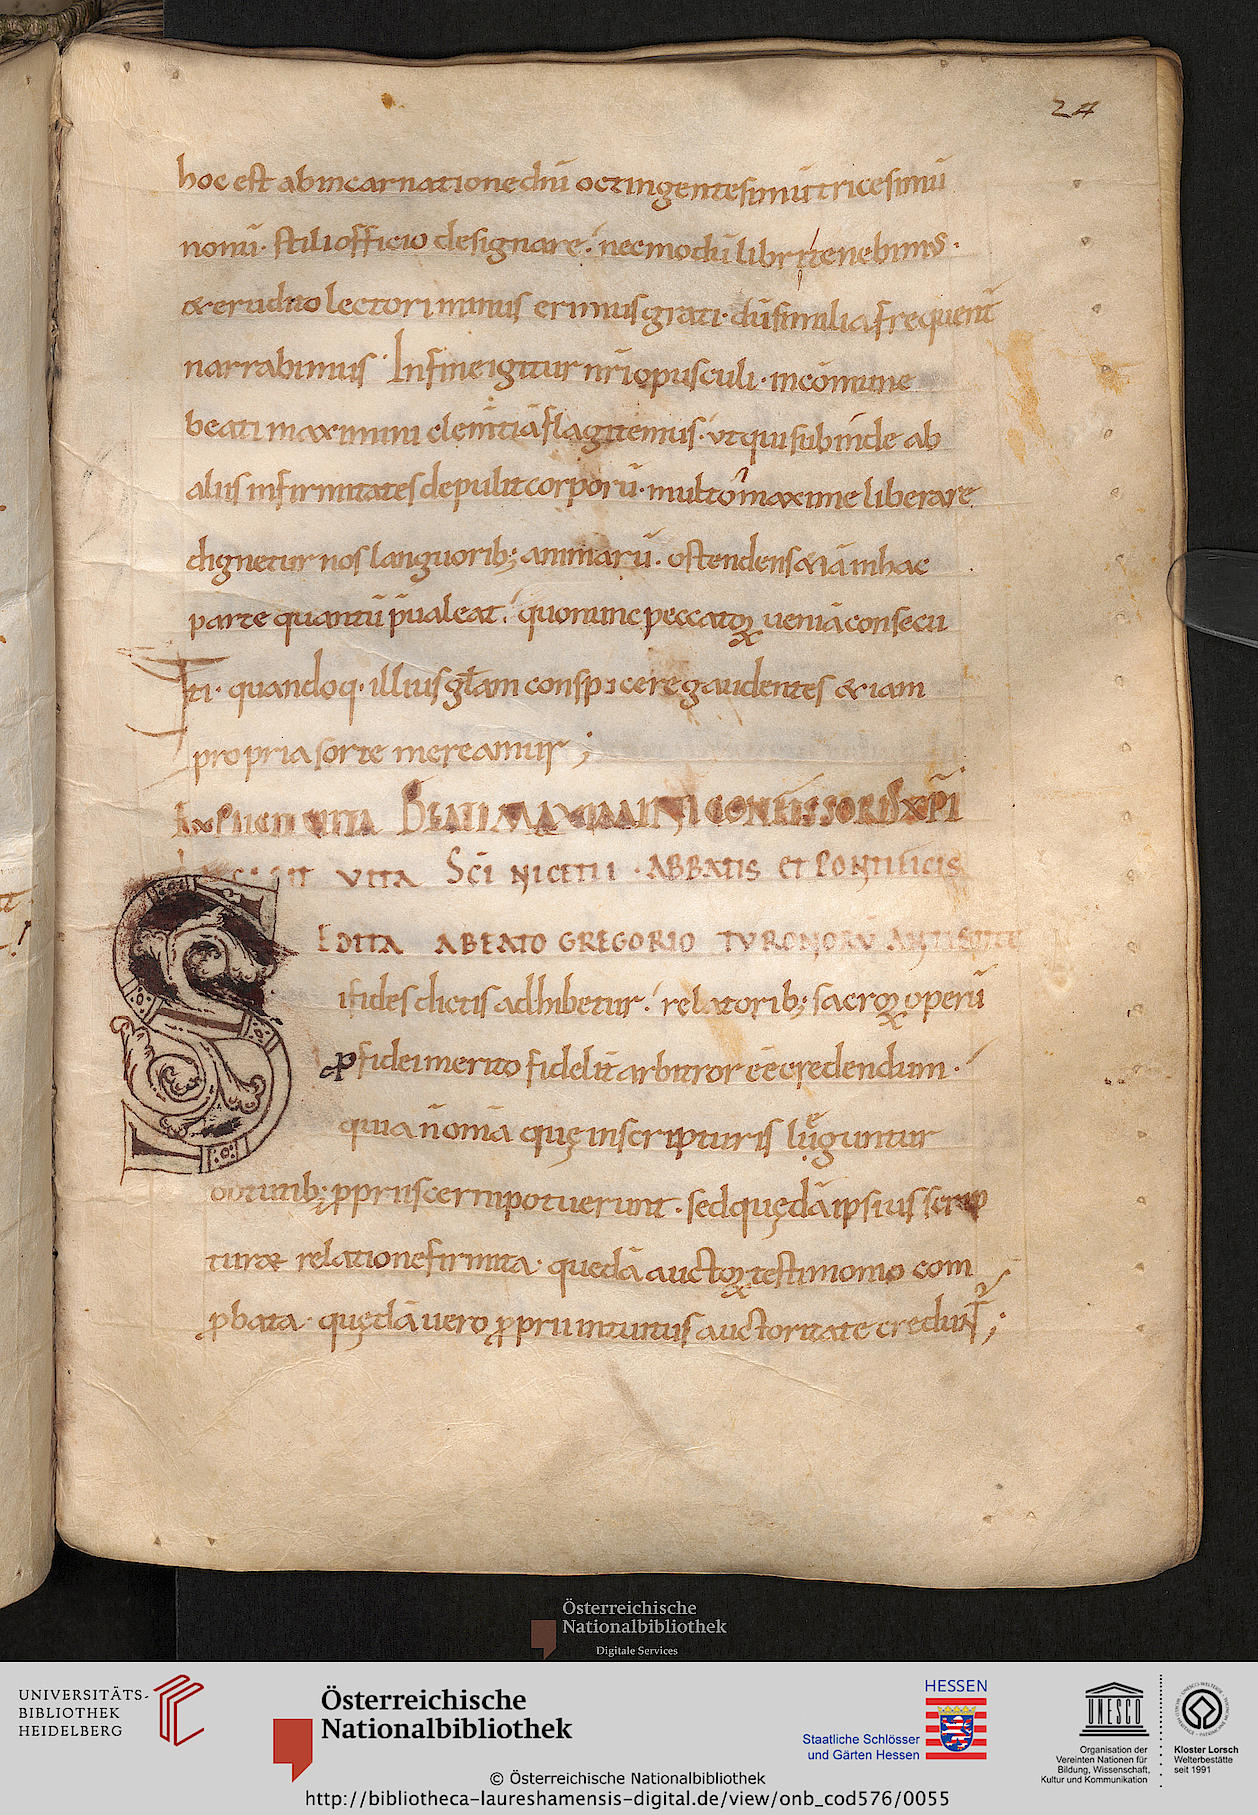 24
hoc est ab incarnatione dnī octingentesimū tricesimū
nonū · stili officio designare · nec modū libri tenebimus ·
& erudito lectori minus erimus grati · dū similia frequent̄
narrabimus · In fine igitur nr̄i opusculi · in cōmune
beati maximini clem̄tiā flagitemus · ut qui subinde ab
aliis infirmitates depulit corporū · multo maxime liberare
dignetur nos languorib; animarū · ostendens &iā in hac
parte quantū p̄ualeat · quo nunc peccatoꝝ ueniā consecu
ti · quandoq· illius gl̄am conspicere gaudentes & iam
propria sorte mereamur ;
EXPLICIT VITA BEATI MAXIMINI CONFESSORIS XPI
VITA SCĪ NICETII · ABBATIS ET PONTIFICIS
EDITA A BEATO GREGORIO TVRONORV̄ ANTISTITE
S
i fides dictis adhibetur · relatorib; sacroꝝ operū
ꝓ fidei merito fidelit̄ arbitror eē credendum ·
quia n̄ om̄ia quę in scripturis lęguntur
obtutib; ꝓpriis cerni potuerunt · sed quędā ipsius scrip
turæ relatione firmita · quedā auctoꝝ testimonio com
ꝓbata · quędā uero ꝓprii intuitus auctoritate credunt̄ ;
Österreichische
Nationalbibliothek
Digitale Services
UNIVERSITÄTS-
BIBLIOTHEK
HEIDELBERG
Österreichische
Nationalbibliothek
HESSEN
Staatliche Schlösser
und Gärten Hessen
UNESCO
Organisation der
Vereinten Nationen für
Bildung, Wissenschaft,
Kultur und Kommunikation
Kloster Lorsch
Welterbestätte
seit 1991
© Österreichische Nationalbibliothek
http://bibliotheca-laureshamensis-digital.de/view/onb_cod576/0055